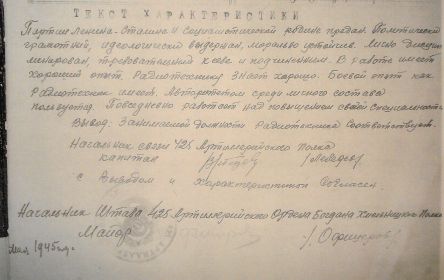 ТЕКСТ ХАРАКТЕРИСТИКИ
Партии Ленина-Сталина и социалистической родине предан. Политически
грамотный, идеологически выдержан, морально устойчив. Лично дисцип
линирован, требовательный к себе и подчиненным. В работе имеет
хороший опыт. Радиотехнику знает хорошо. Боевой опыт как
Радиотехник имеет. Авторитетом среди личного состава
пользуется. Повседневно работает над повышением своей специальности
Вывод: Занимаемой должности Радиотехника Соответствует.
Начальник связи 425 Артиллерийского Полка
капитан
С Выводом и характеристикой Согласен
Начальник Штаба 425 Артиллерийского Ордена Богдана Хмельницкого Полка
Майор
1945